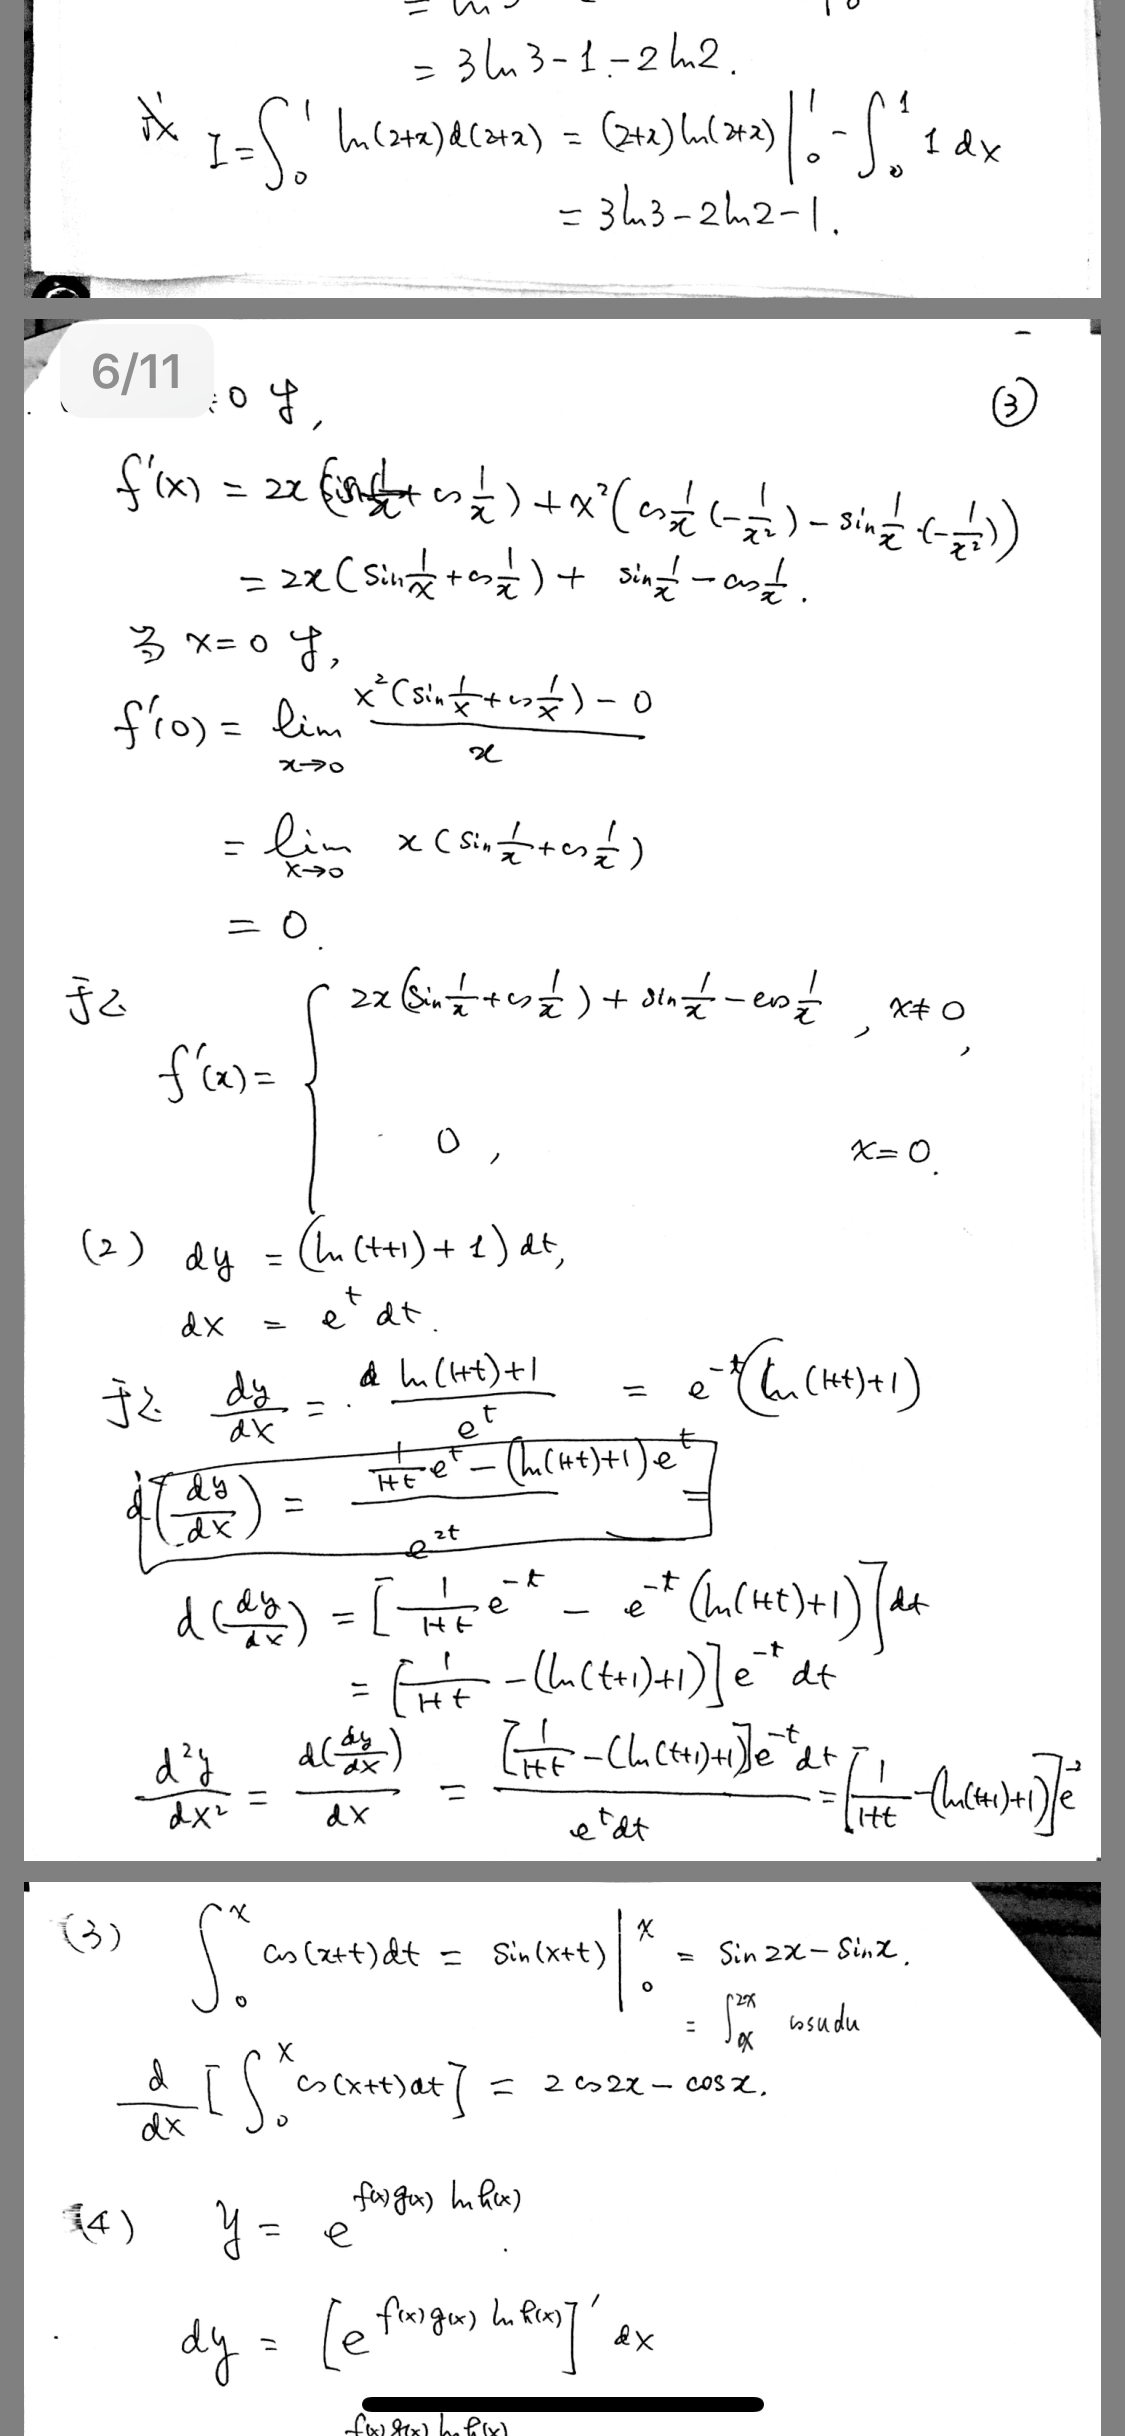 = 3ln3-1-2ln2.
或 I=∫₀¹ ln(2+x)d(2+x) = (2+x)ln(2+x)|₀¹ - ∫₀¹ 1 dx
= 3ln3-2ln2-1.
6/11
=0 时,
③
f'(x) = 2x(sin 1/x + cos 1/x) + x²(cos 1/x (-1/x²) - sin 1/x ·(-1/x²))
= 2x(sin 1/x + cos 1/x) + sin 1/x - cos 1/x.
当 x=0 时,
f'(0) = lim_{x→0} (x²(sin 1/x + cos 1/x) - 0)/x
= lim_{x→0} x(sin 1/x + cos 1/x)
= 0.
于是
f'(x) = { 2x(sin 1/x + cos 1/x) + sin 1/x - cos 1/x, x≠0,
0, x=0.
(2) dy = (ln(t+1)+1)dt,
dx = e^t dt.
于是 dy/dx = (ln(1+t)+1)/e^t = e^{-t}(ln(1+t)+1)
d(dy/dx) = (1/(1+t) e^t - (ln(1+t)+1)e^t)/e^{2t} =
d(dy/dx) = [1/(1+t) e^{-t} - e^{-t}(ln(1+t)+1)]dt
= [1/(1+t) - (ln(t+1)+1)]e^{-t}dt
d²y/dx² = d(dy/dx)/dx = [1/(1+t) - (ln(t+1)+1)]e^{-t}dt/(e^t dt) = [1/(1+t) - (ln(t+1)+1)]e
(3) ∫₀ˣ cos(x+t)dt = sin(x+t)|₀ˣ = sin2x - sinx.
= ∫ₓ²ˣ cosudu
d/dx [∫₀ˣ cos(x+t)dt] = 2cos2x - cosx.
(4) y = e^{f(x)g(x) ln h(x)}.
dy = [e^{f(x)g(x) ln h(x)}]' dx
f(x)g(x) ln h(x)